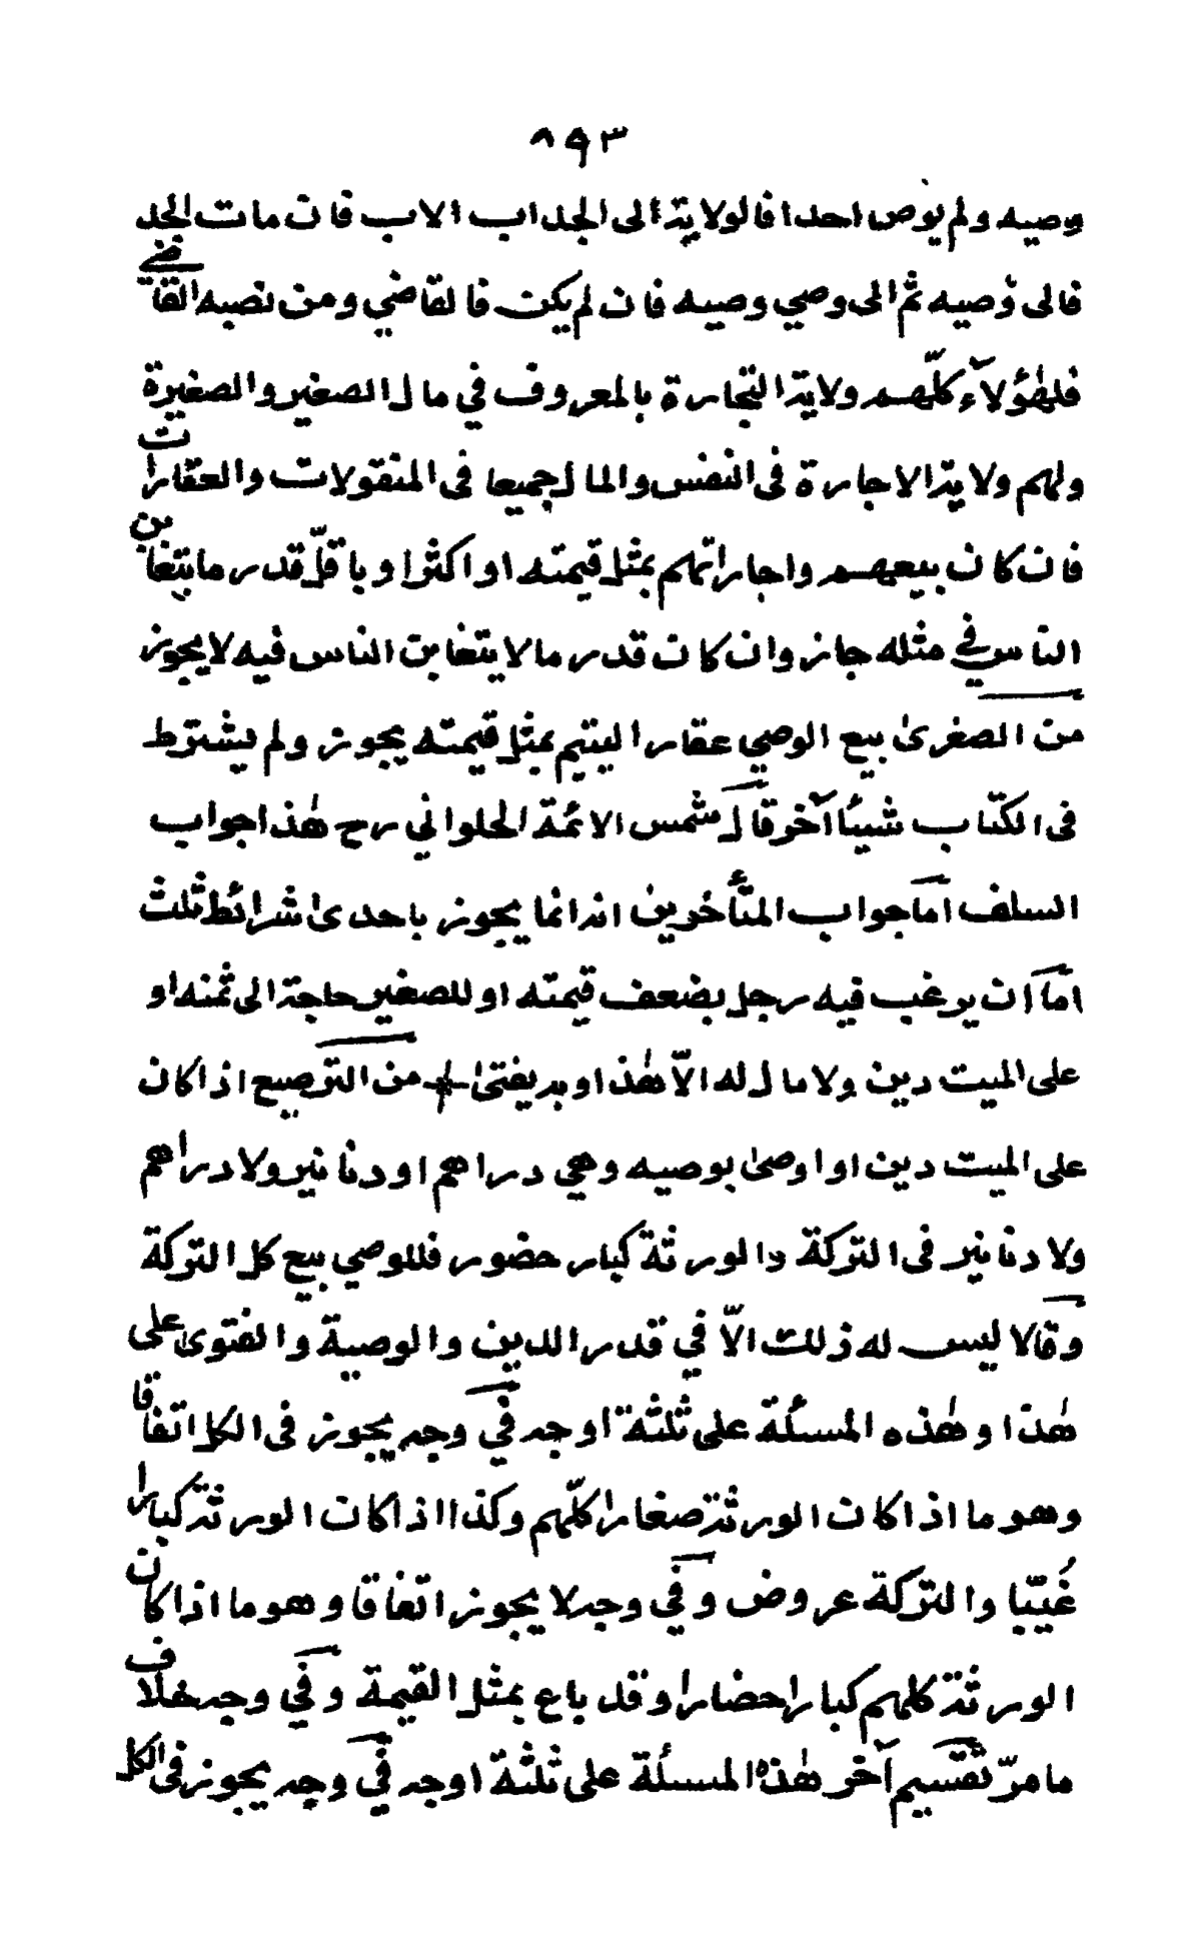 ٨٩٣
وصيه ولم يوص احدا فالولاية الى الجد اب الاب فان مات الجد
فالى وصيه ثم الى وصي وصيه فان لم يكن فالقاضي ومن نصبه القاضي
فلهٰؤلآء كلّهم ولاية التجارة بالمعروف في مال الصغير والصغيرة
ولهم ولاية الاجارة فى النفس والمال جميعا فى المنقولات والعقارات
فان كان بيعهم واجاراتهم بمثل قيمته او اكثر او باقلّ قدر ما يتغابن
الناس في مثله جاز وان كان قدر ما لا يتغابن الناس فيه لا يجوز
من الصغرىٰ بيع الوصي عقار اليتيم بمثل قيمته يجوز ولم يشترط
فى الكتاب شيئا آخر قال شمس الائمة الحلواني رح هٰذا جواب
السلف اما جواب المتأخرين انه انما يجوز باحدىٰ شرائط ثلث
اما ان يرغب فيه رجل بضعف قيمته او للصغير حاجة الى ثمنه او
على الميت دين ولا مال له الاّ هٰذا وبه يفتىٰ من الترصيع اذا كان
على الميت دين او اوصىٰ بوصيه وهي دراهم او دنانير ولا دراهم
ولا دنانير فى التركة والورثة كبار حضور فللوصي بيع كل التركة
وقالا ليس له ذلك الاّ في قدر الدين والوصية والفتوىٰ على
هٰذا وهٰذه المسئلة على ثلثة اوجه في وجه يجوز فى الكل اتفاقا
وهو ما اذا كان الورثة صغارا كلّهم وكذا اذا كان الورثة كبارا
غُيّبا والتركة عروض وفي وجه لا يجوز اتفاقا وهو ما اذا كان
الورثة كلهم كبارا حضارا وقد باع بمثل القيمة وفي وجه خلاف
ما مرّ تقسيم آخر هٰذه المسئلة على ثلثة اوجه في وجه يجوز فى الكل